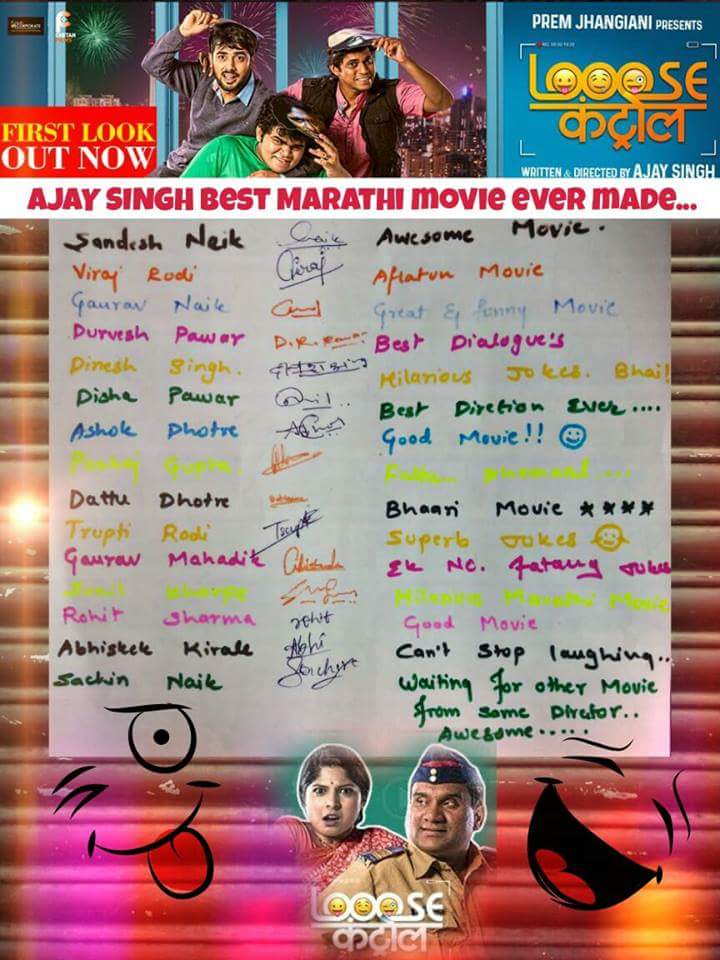 CORPORATE
CHETAN
PREM JHANGIANI PRESENTS
LOOOSE
कंट्रोल
FIRST LOOK
OUT NOW
WRITTEN & DIRECTED BY AJAY SINGH
AJAY SINGH BEST MARATHI MOVIE EVER MADE...
Sandesh Naik Naik Awesome Movie.
Viraj Rodi Viraj Aflatun Movie
Gaurav Naik Great & funny Movie
Durvesh Pawar D.R. Pawar Best Dialogue's
Dinesh Singh. Hilarious Jokes. Bhai!
Disha Pawar Best Direction Ever....
Ashok Dhotre Good Movie!! ☺
Pankaj Gupta.
Dattu Dhotre Bhaari Movie ****
Trupti Rodi Trupti Superb Jokes ☺
Gaurav Mahadik Ek No. fatang Jokes
Sunil Kharpe Hilarious Marathi Movie
Rohit Sharma rohit Good Movie
Abhishek Kirale Abhi Can't Stop laughing..
Sachin Naik Sachin Waiting for other Movie
from same Dirctor..
Awesome.....
LOOOSE
कंट्रोल